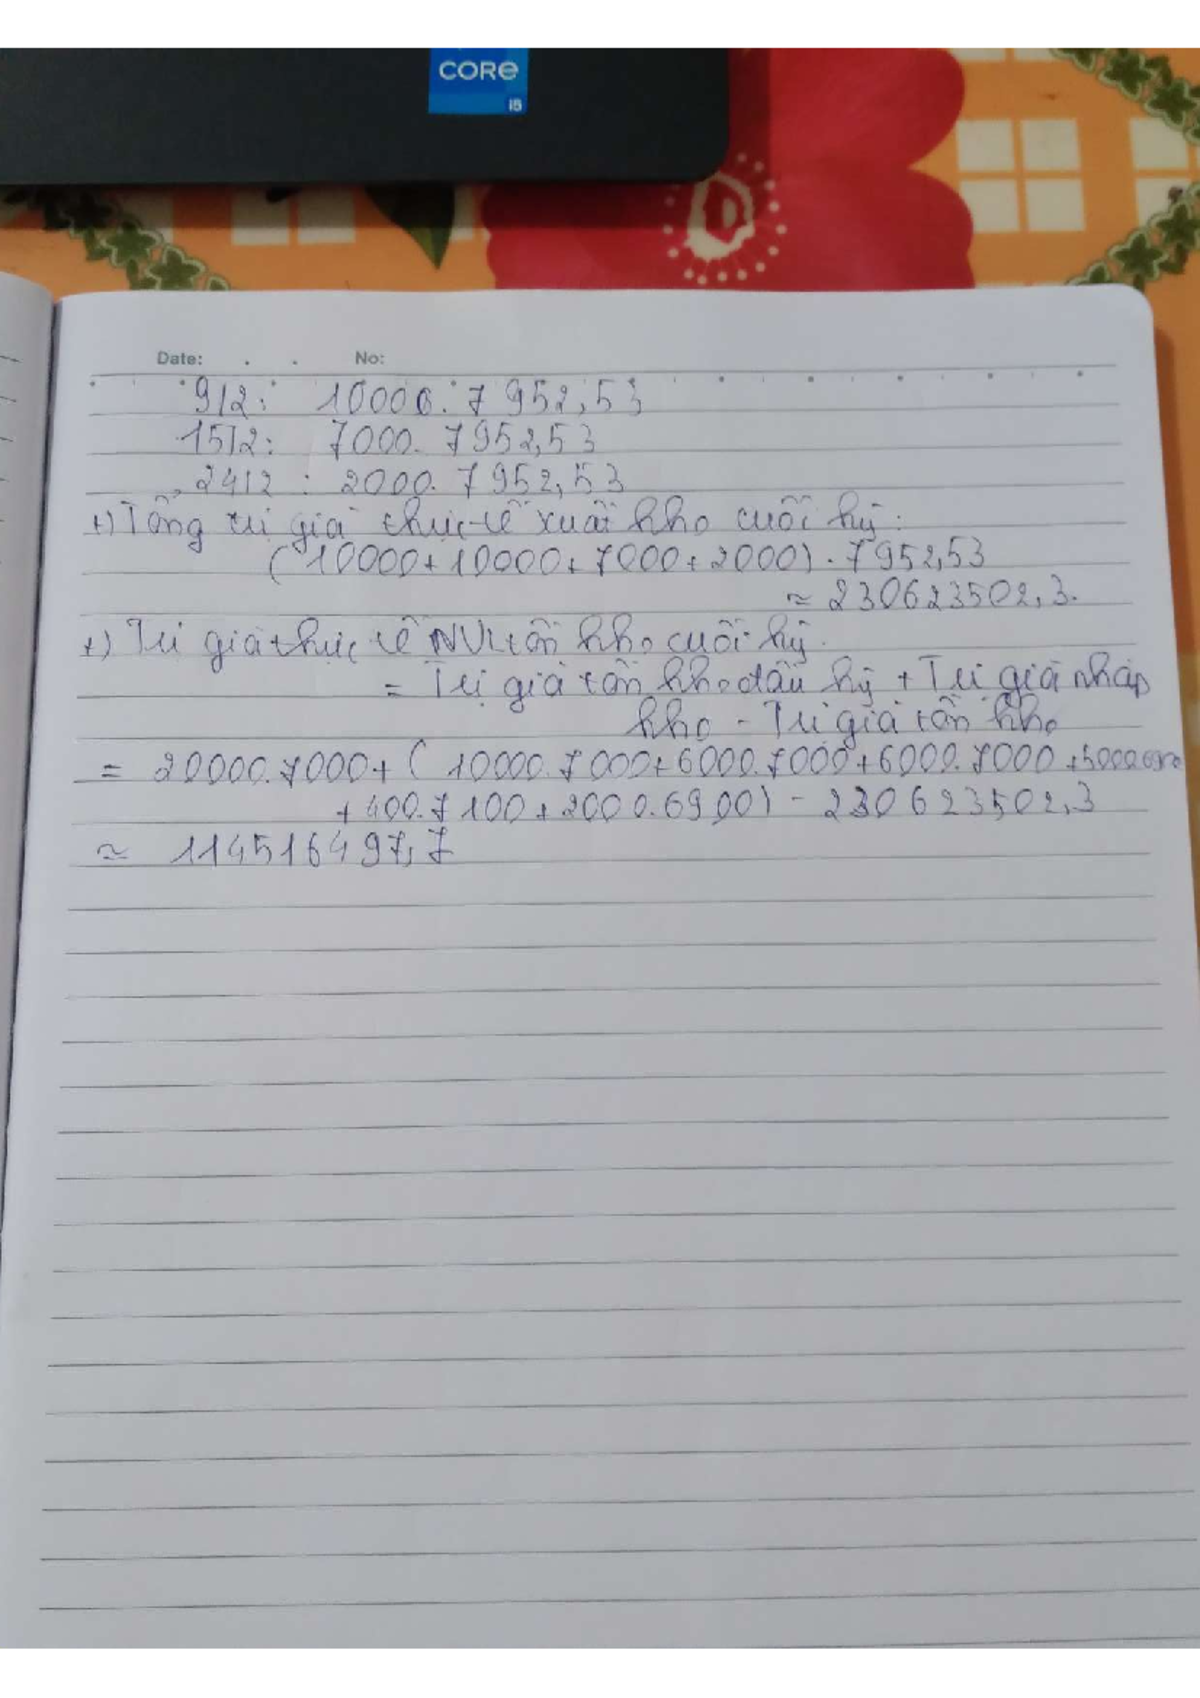 CORe
i5
Date: . . No:
9/2: 10000. 7952,53
15/2: 7000. 7952,53
24/2 : 2000. 7952,53
+) Tổng trị giá thực tế xuất kho cuối kỳ:
(10000+10000+7000+2000). 7952,53
≈ 230623502,3.
+) Trị giá thực tế NVL tồn kho cuối kỳ.
= Trị giá tồn kho đầu kỳ + Trị giá nhập
kho - Trị giá tồn kho
= 20000.7000+ (10000.7000+6000.7000+6000.7000 +5000.
+400.7100+2000.6900) - 230623502,3
≈ 114516497,7